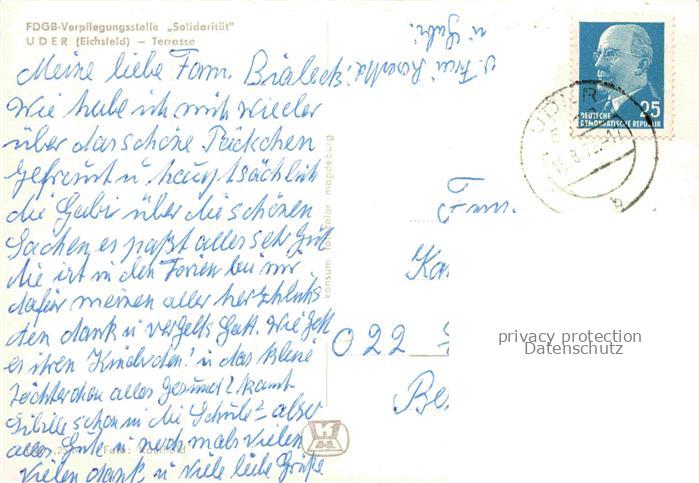 FDGB-Verpflegungsstelle „Solidarität"
UDER (Eichsfeld) – Terrasse
Meine liebe Fam. Bialeck!
Wie habe ich mich wieder
über das schöne Päckchen
gefreut u. hauptsächlich
die Gabi über die schönen
Sachen es paßt alles sehr gut
die ist in den Ferien bei mir
dafür meinen aller herzlichs
ten dank u vergelts Gott. Wie geht
es ihren Kindchen! u das kleine
Töchterchen alles gesund? kamt
schon in die Schule? aber
alles Gute u noch mals vielen
vielen dank u viele liebe Grüße
v. Frei
u Gabi.
konsum fotocolor magdeburg
25
DEUTSCHE
DEMOKRATISCHE REPUBLIK
UDER
Fam.
Ka
022
Be
privacy protection
Datenschutz